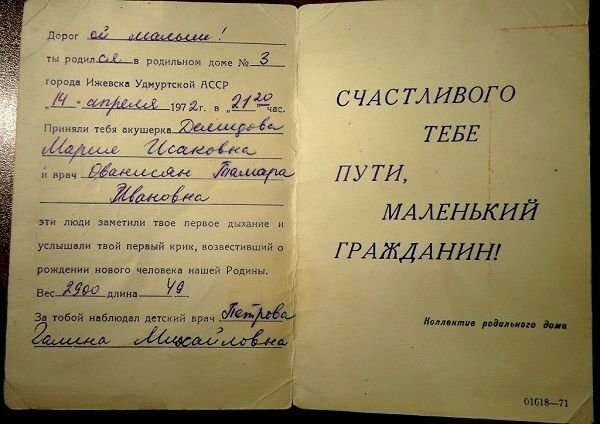 Дорог ой малыш!
ты родился в родильном доме № 3
города Ижевска Удмуртской АССР
„14" апреля 1972г. в „21 20" час.
Приняли тебя акушерка Демидова
Мария Исаковна
и врач Ованисян Тамара
Ивановна
эти люди заметили твое первое дыхание и
услышали твой первый крик, возвестивший о
рождении нового человека нашей Родины.
Вес 2900 длина 49
За тобой наблюдал детский врач Петрова
Галина Михайловна
СЧАСТЛИВОГО
ТЕБЕ
ПУТИ,
МАЛЕНЬКИЙ
ГРАЖДАНИН!
Коллектив родильного дома
01618—71